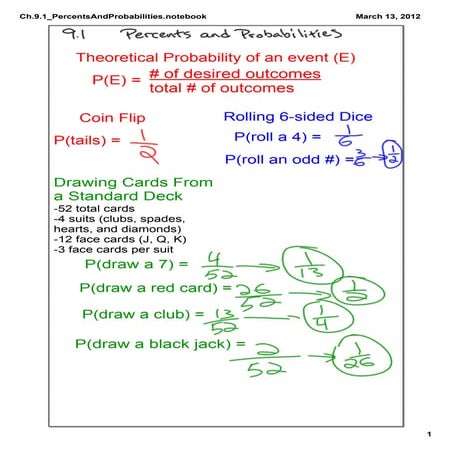 Ch.9.1_PercentsAndProbabilities.notebook
March 13, 2012
9.1 Percents and Probabilities
Theoretical Probability of an event (E)
P(E) = # of desired outcomes
total # of outcomes
Coin Flip
P(tails) = 1/2
Rolling 6-sided Dice
P(roll a 4) = 1/6
P(roll an odd #) = 3/6 → 1/2
Drawing Cards From
a Standard Deck
-52 total cards
-4 suits (clubs, spades,
hearts, and diamonds)
-12 face cards (J, Q, K)
-3 face cards per suit
P(draw a 7) = 4/52 → 1/13
P(draw a red card) = 26/52 → 1/2
P(draw a club) = 13/52 → 1/4
P(draw a black jack) = 2/52 → 1/26
1